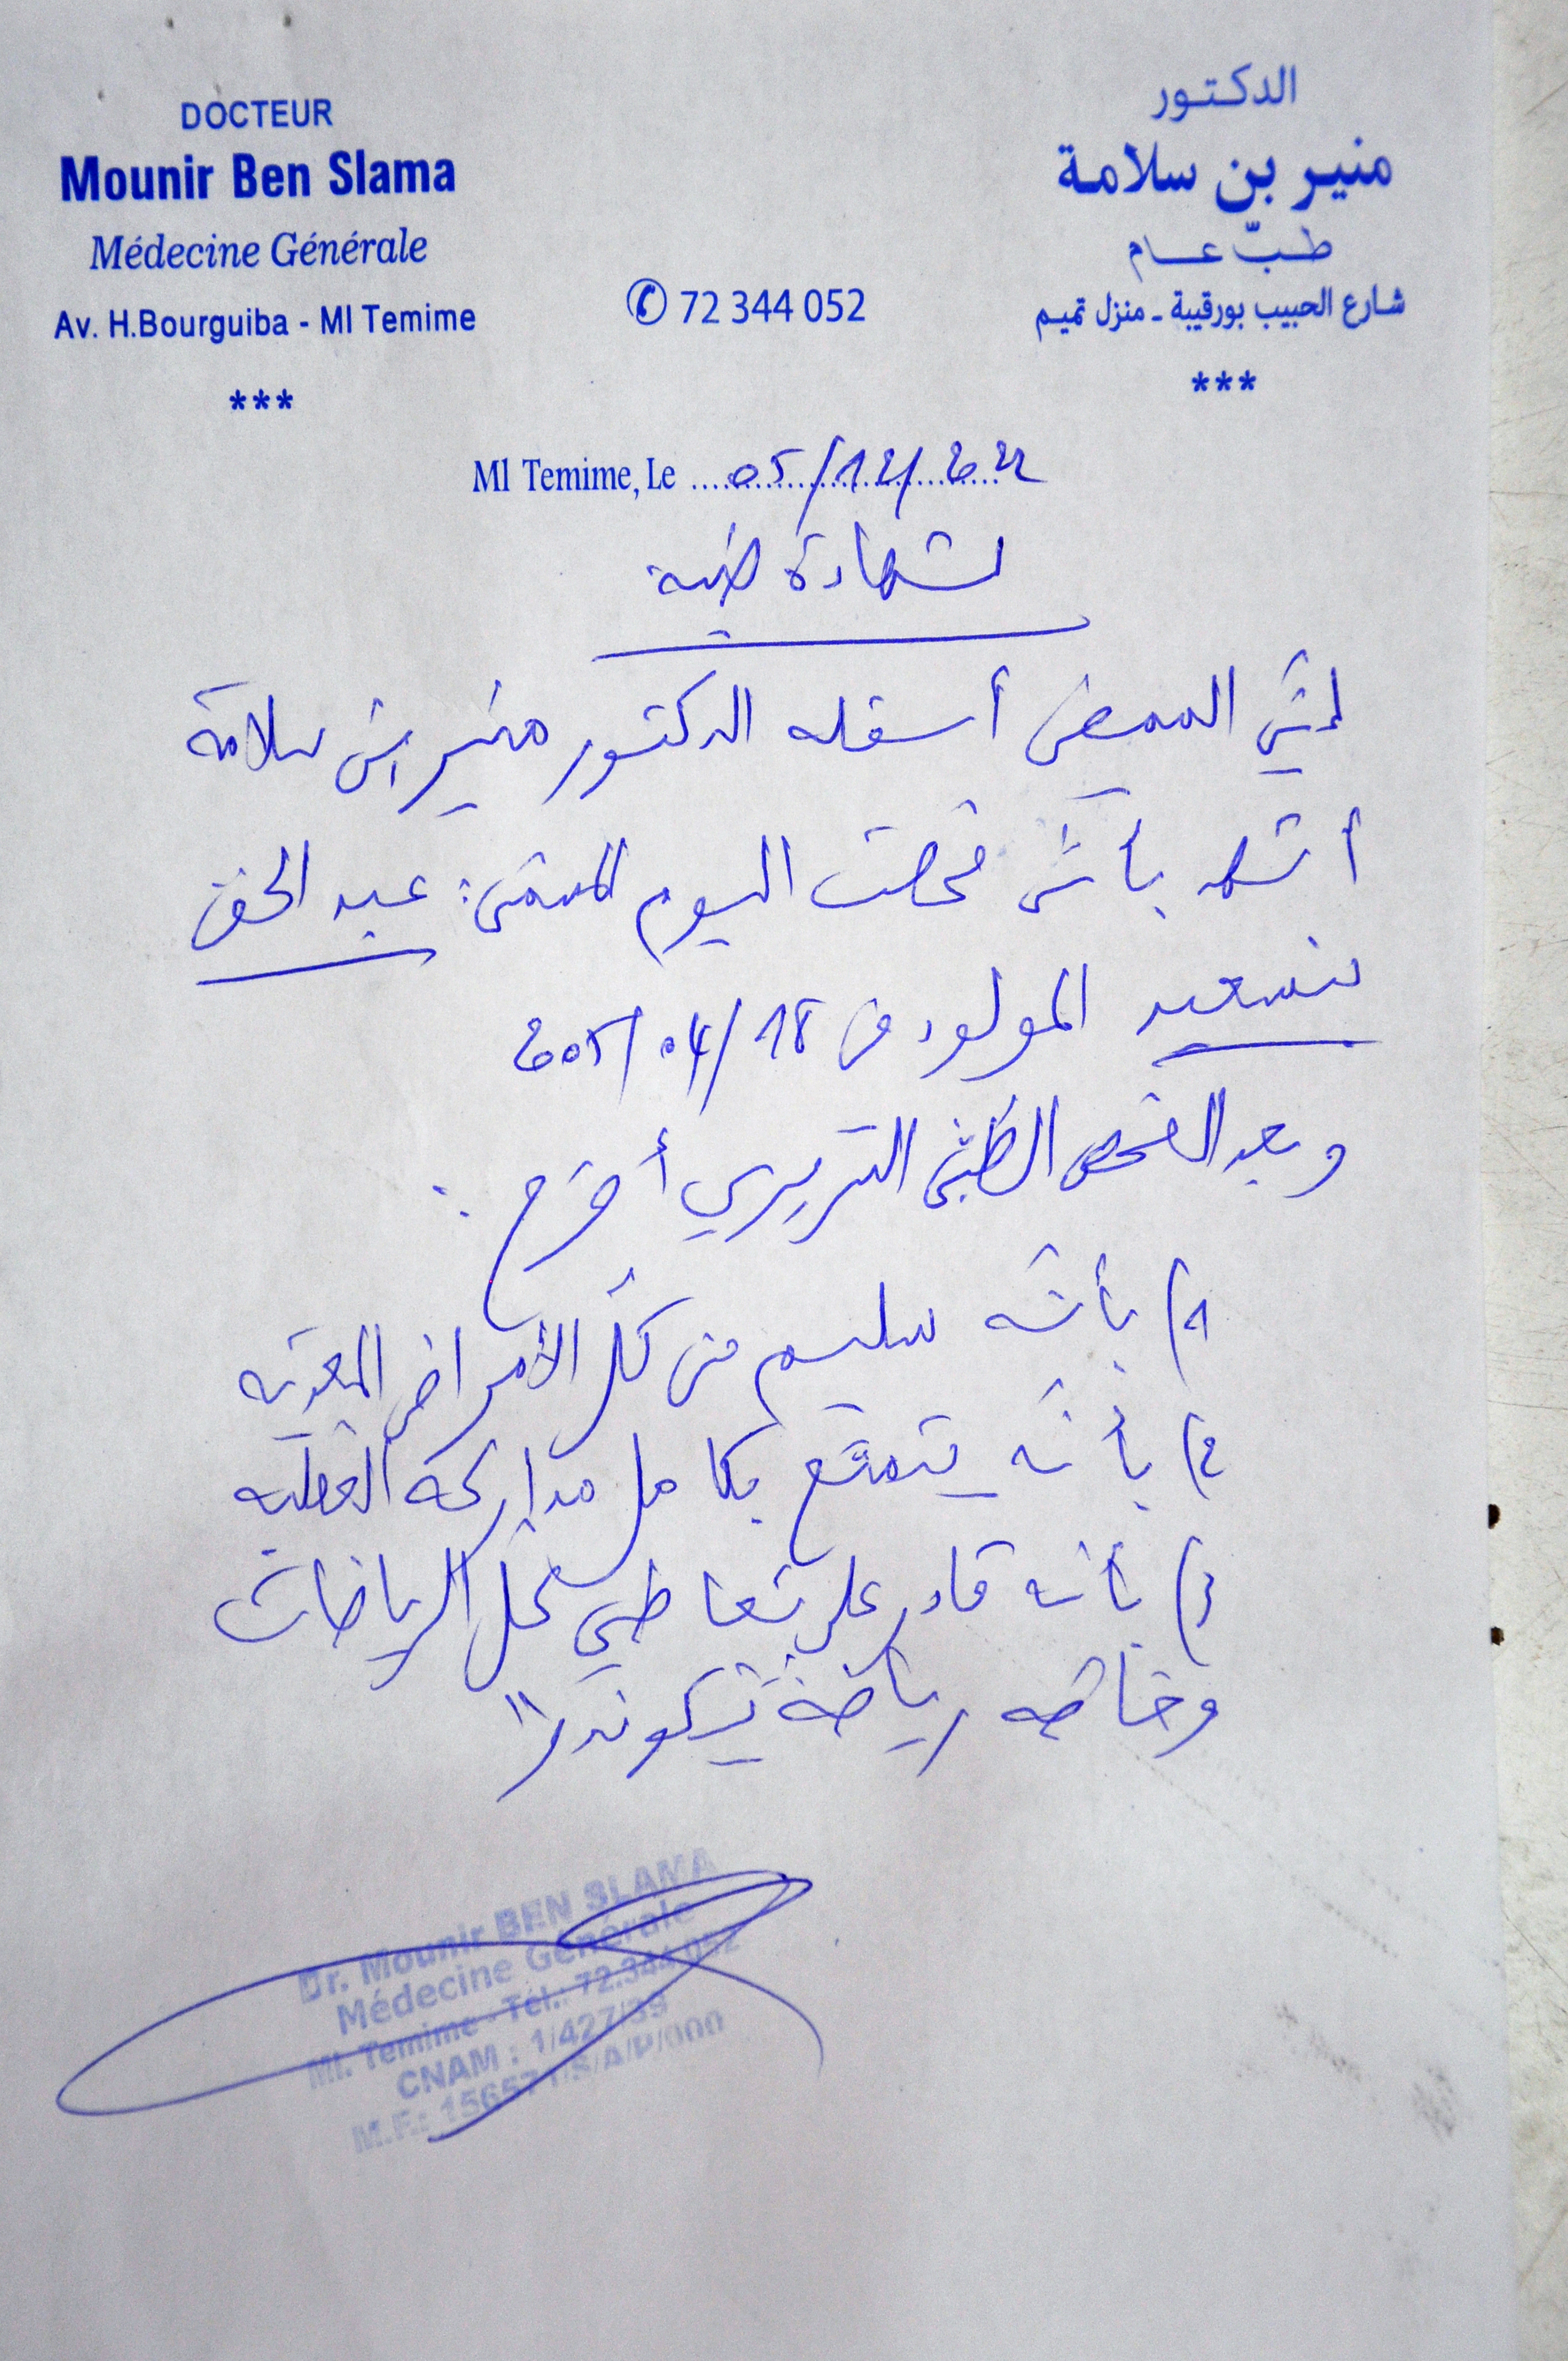 DOCTEUR
Mounir Ben Slama
Médecine Générale
Av. H.Bourguiba - Ml Temime
***
✆ 72 344 052
الدكتور
منير بن سلامة
طبّ عام
شارع الحبيب بورقيبة - منزل تميم
***
Ml Temime, Le 05/12/022
شهادة طبية
إنّي الممضي أسفله الدكتور منير بن سلامة
أشهد بأنّي فحصت اليوم المسمّى: عبد الحق
بنسعيد المولود في 18/04/2005
وبعد الفحص الطبّي السريري أصرّح :
1) بأنّه سليم من كلّ الأمراض المعدية
2) بأنّه يتمتّع بكامل مداركه العقلية
3) بأنه قادر على تعاطي كل الرياضات
وخاصّة رياضة تيكوندو"
Dr. Mounir BEN SLAMA
Médecine Générale
Ml. Temime - Tél.: 72.344.052
CNAM : 1/427/39
M.F.: /A/P/000